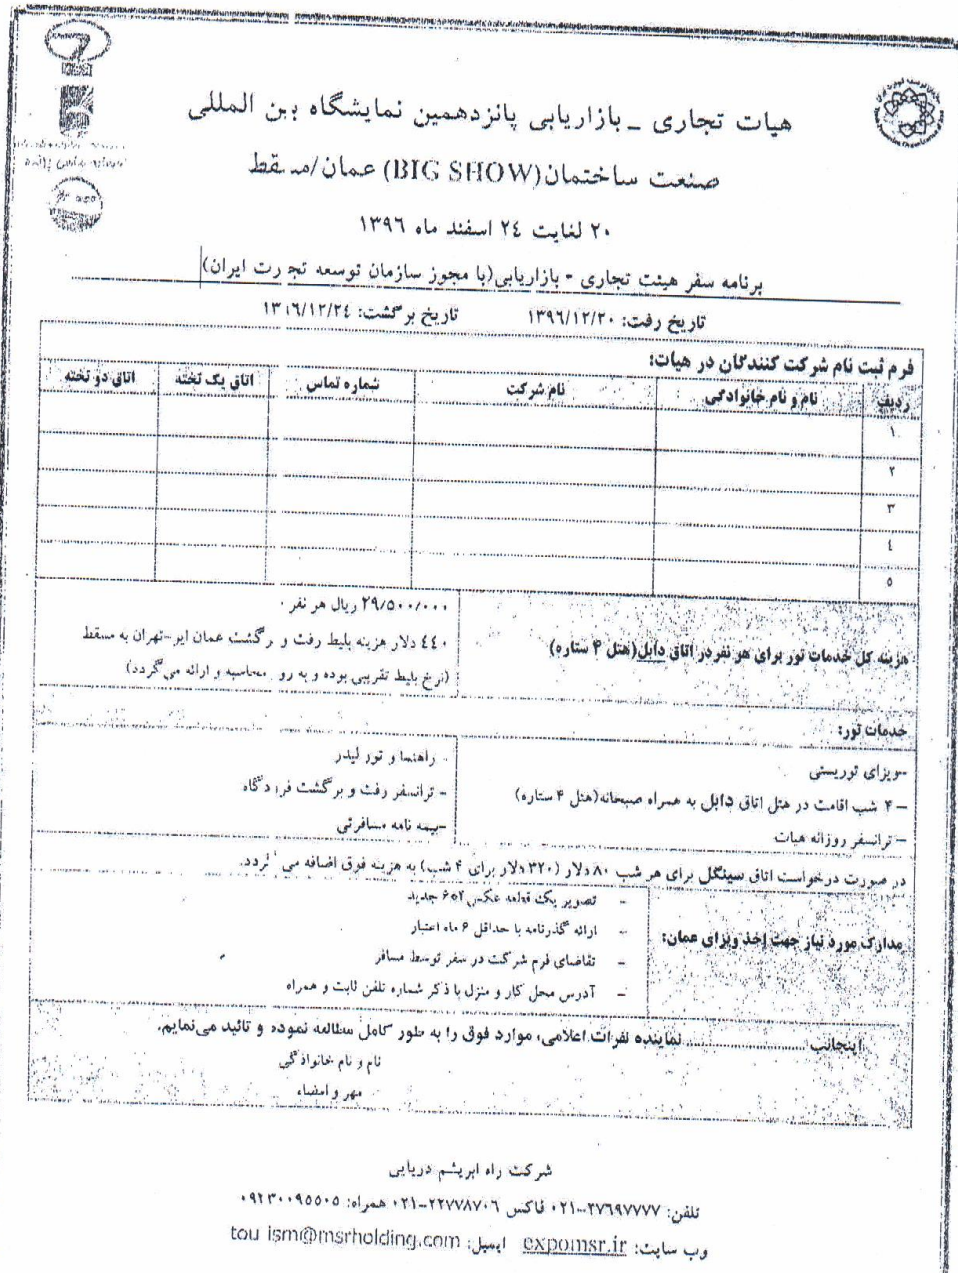 هیات تجاری _ بازاریابی پانزدهمین نمایشگاه بین المللی
صنعت ساختمان(BIG SHOW) عمان/مسقط
۲۰ لغایت ۲٤ اسفند ماه ۱۳۹٦
برنامه سفر هیئت تجاری - بازاریابی(با مجوز سازمان توسعه تجارت ایران)
تاریخ رفت: ۱۳۹٦/۱۲/۲۰ تاریخ برگشت: ۱۳۹٦/۱۲/۲٤
فرم ثبت نام شرکت کنندگان در هیات:
ردیف نام و نام خانوادگی نام شرکت شماره تماس اتاق یک تخته اتاق دو تخته
۱
۲
۳
٤
۵
هزینه کل خدمات تور برای هر نفر در اتاق دابل(هتل ۴ ستاره)
۲۹/۵۰۰/۰۰۰ ریال هر نفر
٤٤۰ دلار هزینه بلیط رفت و برگشت عمان ایر-تهران به مسقط
(نرخ بلیط تقریبی بوده و به روز محاسبه و ارائه می گردد)
خدمات تور:
-ویزای توریستی
– ۴ شب اقامت در هتل اتاق دابل به همراه صبحانه(هتل ۴ ستاره)
– ترانسفر روزانه هیات
- راهنما و تور لیدر
- ترانسفر رفت و برگشت فرودگاه
-بیمه نامه مسافرتی
در صورت درخواست اتاق سینگل برای هر شب ۸۰ دلار (۳۲۰ دلار برای ۴ شب) به هزینه فوق اضافه می گردد.
مدارک مورد نیاز جهت اخذ ویزای عمان:
- تصویر یک قطعه عکس ۴*۶ جدید
- ارائه گذرنامه با حداقل ۶ ماه اعتبار
- تقاضای فرم شرکت در سفر توسط مسافر
- آدرس محل کار و منزل با ذکر شماره تلفن ثابت و همراه
اینجانب .............................. نماینده نفرات اعلامی، موارد فوق را به طور کامل مطالعه نموده و تائید می‌نمایم.
نام و نام خانوادگی
مهر و امضاء
شرکت راه ابریشم دریایی
تلفن: ۲۷٦۹۷۷۷۷-۰۲۱ فاکس ۲۲۷۷۸۷۰٦-۰۲۱ همراه: ۰۹۲۳۰۰۹۵۵۰۵
وب سایت: expomsr.ir ایمیل: tourism@msrholding.com